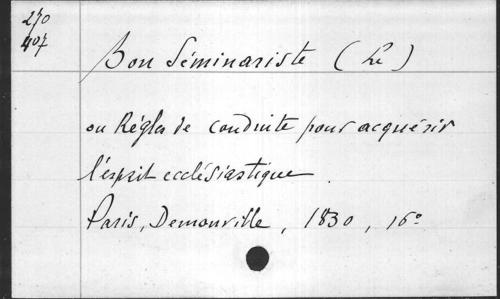 270
407
Bon Séminariste (Le)
ou Règles de conduite pour acquérir
l'esprit ecclésiastique
Paris, Demonville, 1830, 16°